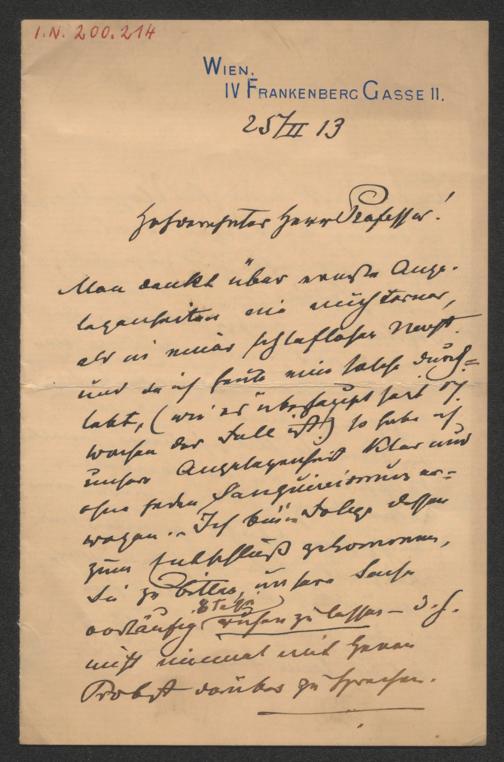 I.N. 200.214
WIEN.
IV FRANKENBERG GASSE 11.
25/II 13
Hochverehrter Herr Professor!
Man denkt über ernste Ange-
legenheiten nie nüchterner,
als in einer schlaflosen Nacht.
und da ich heute eine solche durch=
lebt, (wie es überhaupt seit 17
Wochen der Fall ist!) so habe ich
unsere Angelegenheit klar und
ohne jeden Sanguinismus er=
wogen. Ich bin in Folge dessen
zum Entschluß gekommen,
Sie zu bitten, unsere Sache
vorläufig
ruhen zu lassen – d. h.
nicht einmal mit Herrn
Probst darüber zu sprechen.